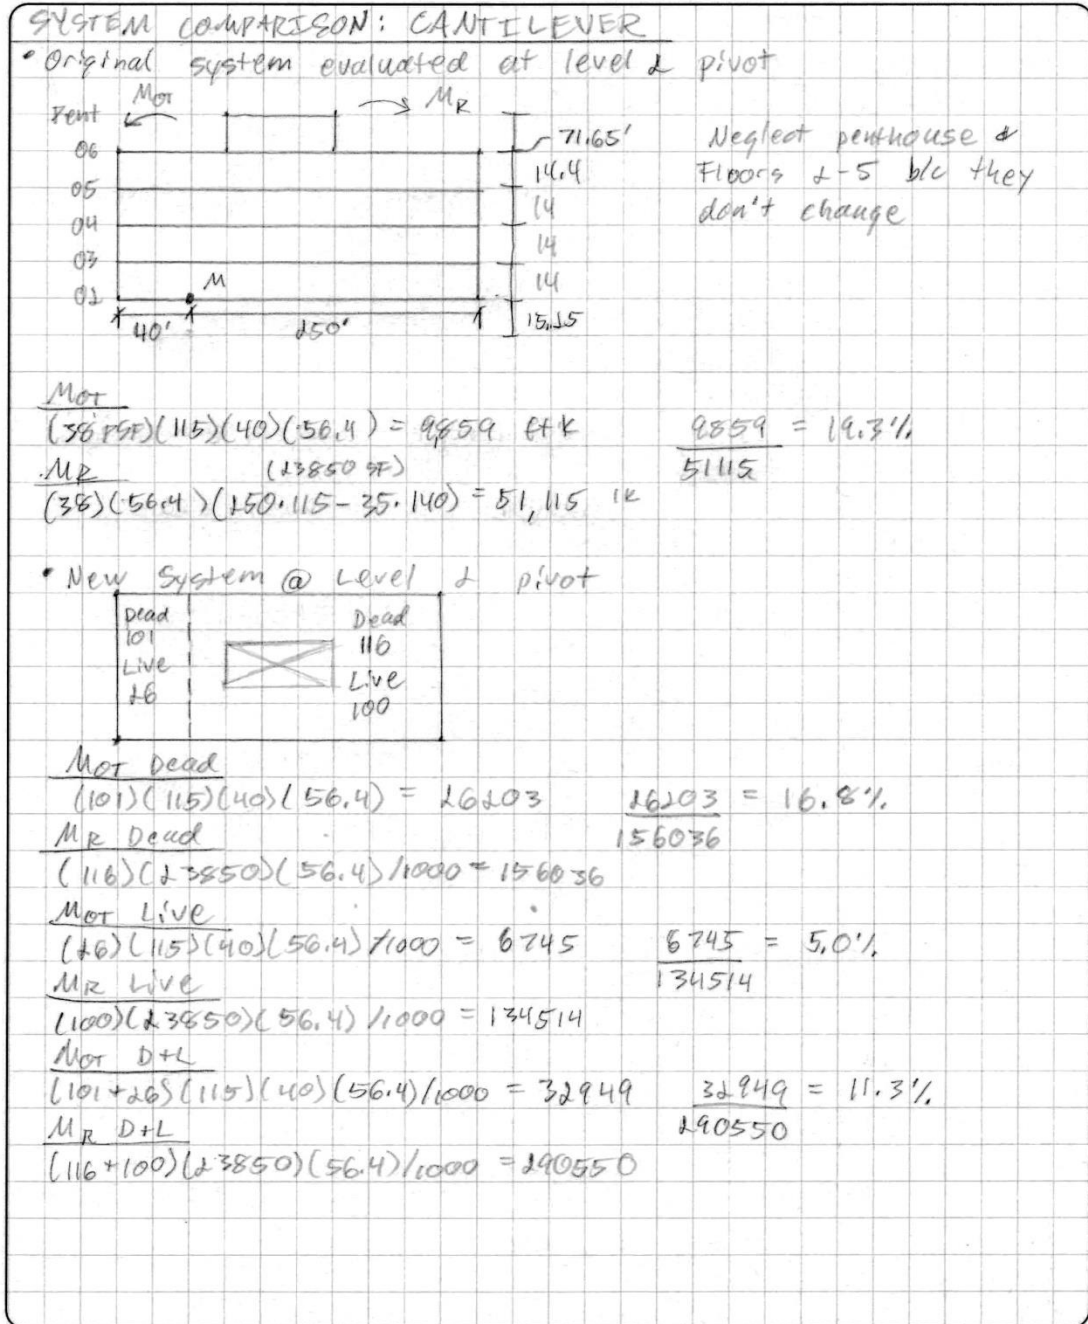 SYSTEM COMPARISON: CANTILEVER
• Original system evaluated at level 2 pivot
MOT MR
Pent
71.65'
Neglect penthouse &
06
14.4
Floors 2-5 b/c they
05
14
don't change
04
14
03
14
M
02
15.25
40' 250'
MOT
(38 PSF)(115)(40)(56.4) = 9,859 ft K
9859 / 51115 = 19.3%
MR (23850 SF)
(38)(56.4)(250·115 - 35·140) = 51,115 'K
• New System @ Level 2 pivot
Dead
101
Live
26
Dead
116
Live
100
MOT Dead
(101)(115)(40)(56.4) = 26203
26203 / 156036 = 16.8%
MR Dead
(116)(23850)(56.4)/1000 = 156036
MOT Live
(26)(115)(40)(56.4)/1000 = 6745
6745 / 134514 = 5.0%
MR Live
(100)(23850)(56.4)/1000 = 134514
MOT D+L
(101+26)(115)(40)(56.4)/1000 = 32949
32949 / 290550 = 11.3%
MR D+L
(116+100)(23850)(56.4)/1000 = 290550